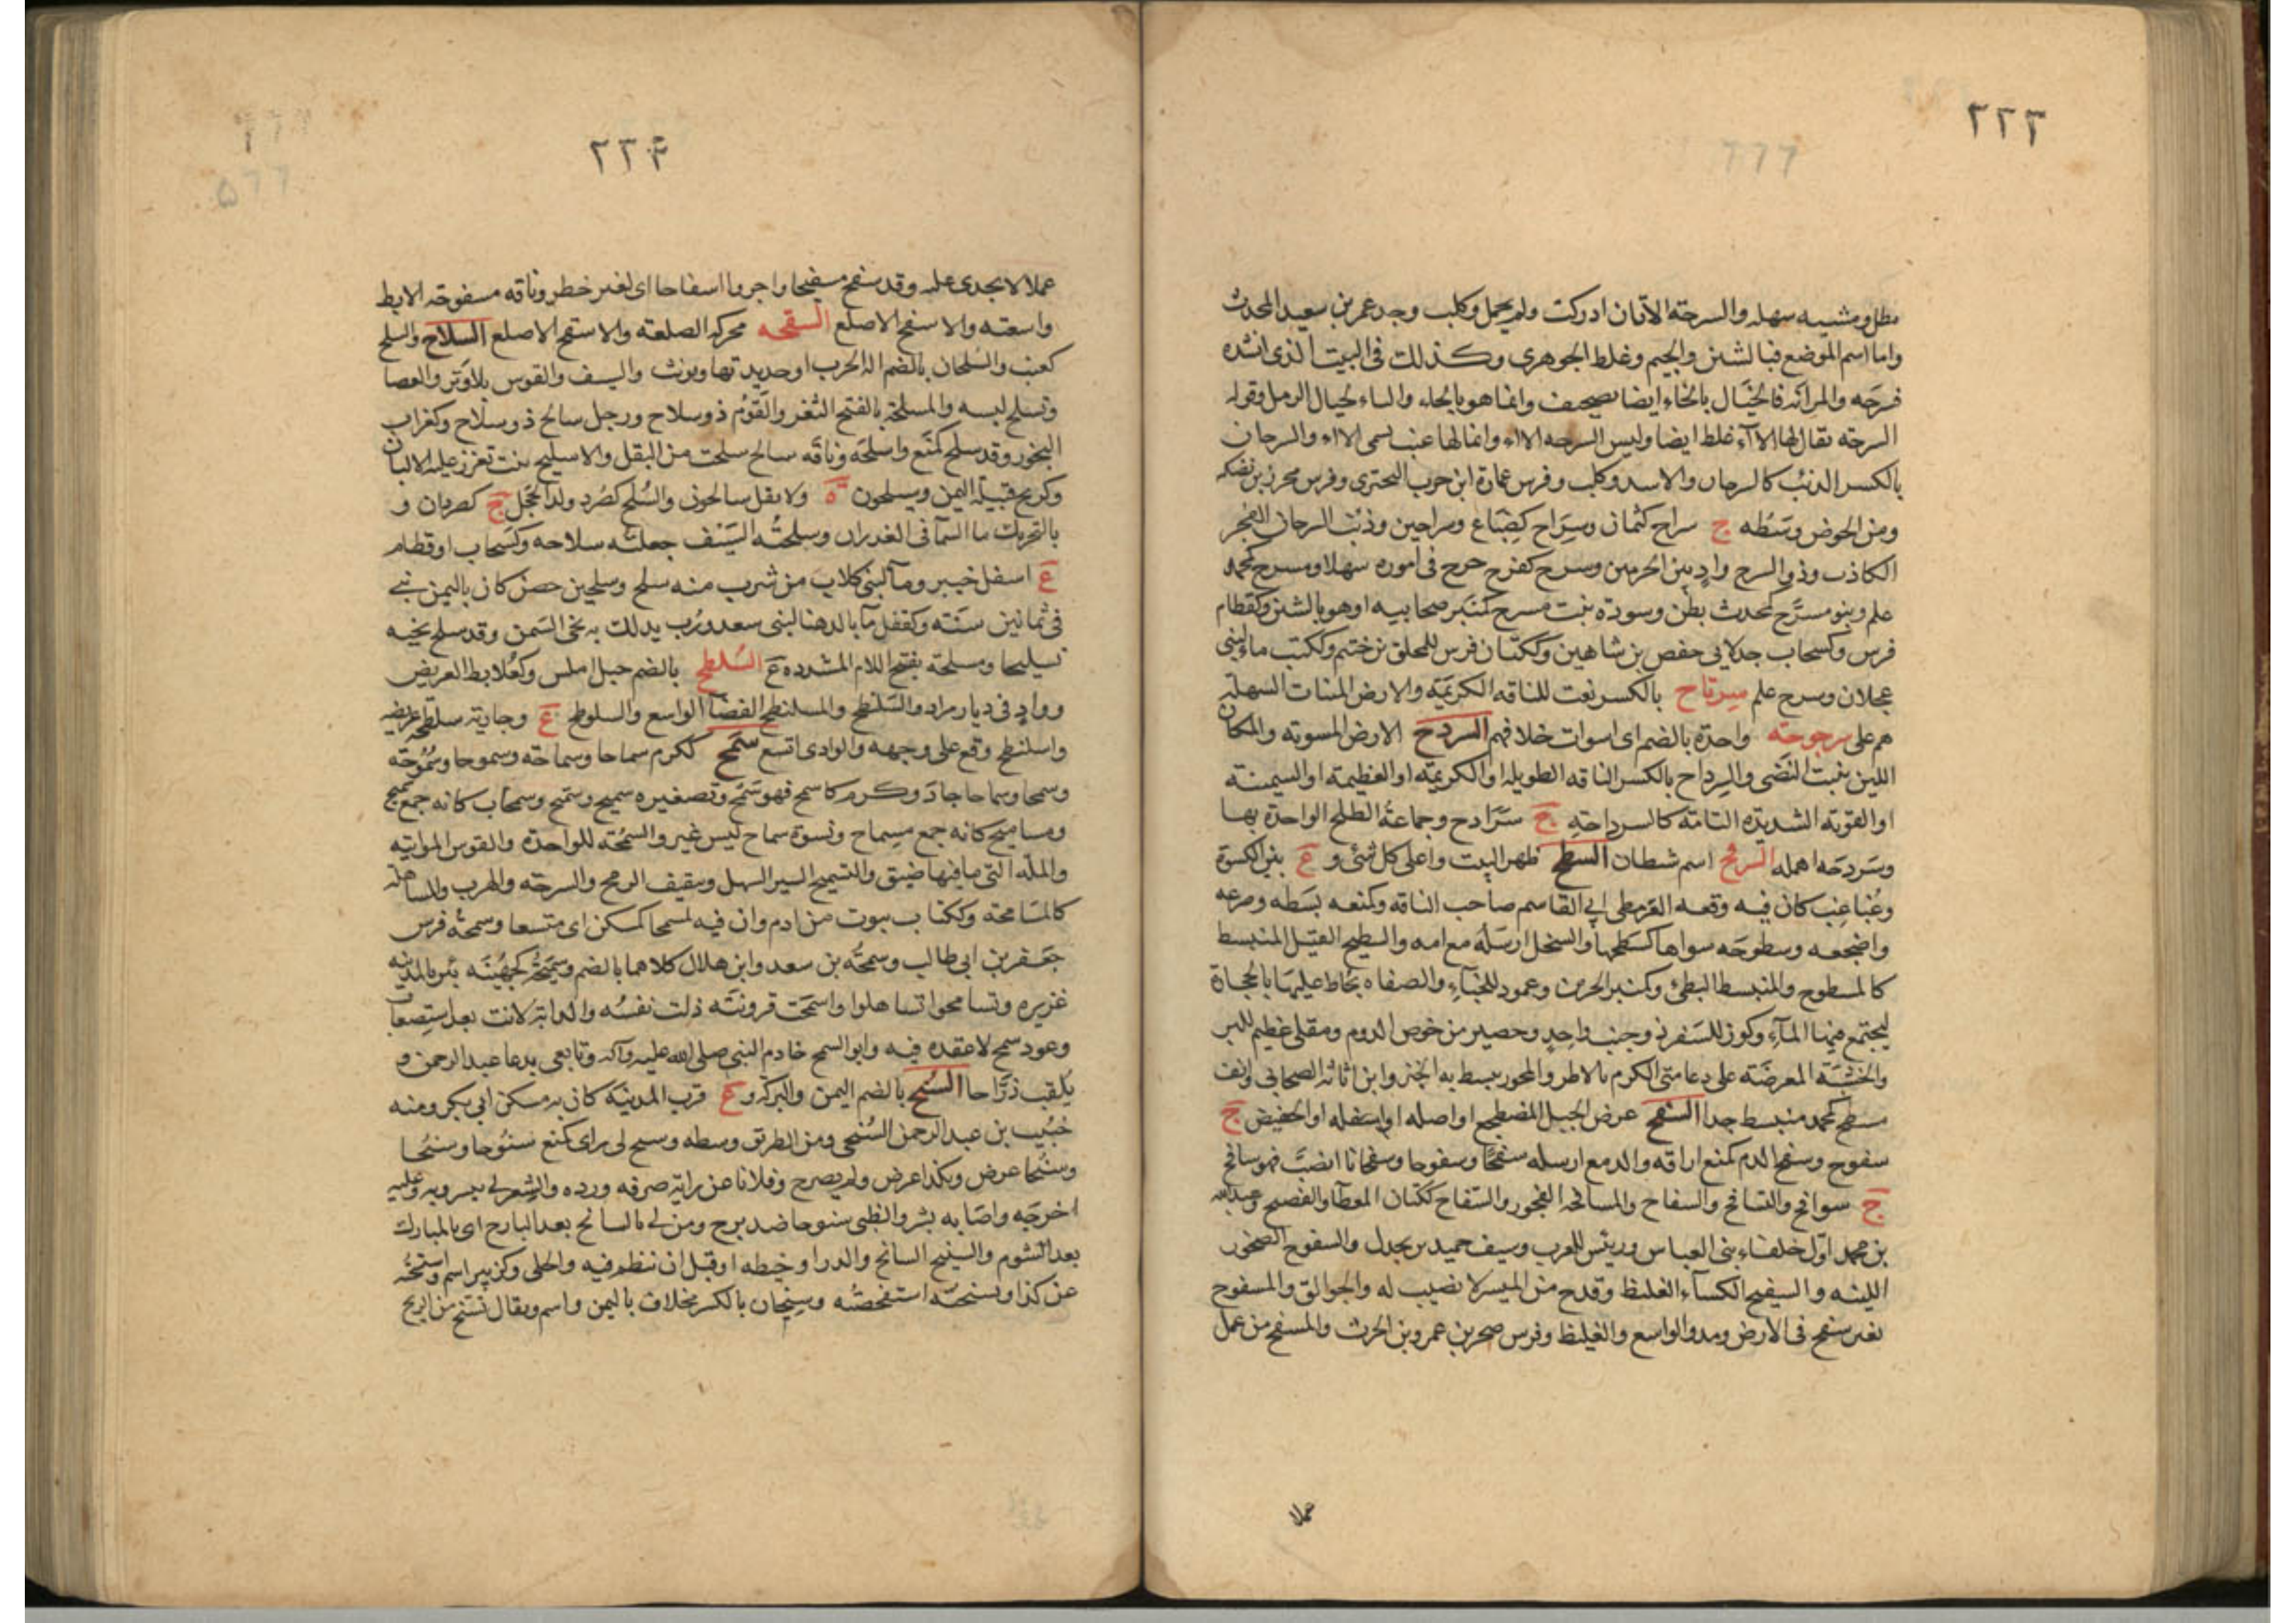 ٢٢٣
مظل ومشيه سهله والسرحة الاتان ادركت ولم يحمل وكلب وجد عمر بن سعيد المحدث
واما اسم الموضع فبالشين والجيم وغلط الجوهرى وكذلك فى البيت الذى انشده
فرجه والمرائه فالخيال بالخاء ايضا تصحيف وانما هو بالحاء والباء لحيال الرمل وقوله
السرحه يقال لها الاآء غلط ايضا وليس السرحه الااء وانما لها عنب يسمى الااء والسرحان
بالكسر الذئب كالسرحان والاسد وكلب وفرس عمارة ابن حرب البحترى وفرس محرز بن نضله
ومن الحوض وسطه ج سراح كثمان وسراح كضباع وسراحين وذنب السرحان الفجر
الكاذب وذو السرح واد بين الحرمين وسرح كفرح خرج فى اموره سهلا ومسرح كمحمد
علم وبنو مسرح كمحدث بطن وسوده بنت مسرح كمنبر صحابيه او هو بالشين وكقطام
فرس وكسحاب جد لابى حفص بن شاهين وككتان فرس للمحلق بن ختم وككتب ماء لبنى
عجلان وسرح علم سرتاح بالكسر نعت للناقه الكريمه والارض المنبات السهله
هم على سرجوحة واحدة بالضم اى استوت اخلاقهم السردح الارض المستويه والمكان
اللين ينبت النضى والسرداح بالكسر الناقه الطويله او الكريمه او العظيمه او السمينة
او القويه الشديده التامه كالسرداحة ج سرادح وجماعة الطلح الواحدة بها
وسردحه اهمله السرفح اسم شيطان السطح ظهر البيت واعلى كل شئ و ع بين الكسوة
وغباغب كان فيه وقعه القرمطى ابى القاسم صاحب الناقه وكمنعه بسطه وصرعه
واضجعه وسطوحه سواها كسطحها والسخل ارسله مع امه والسطيح القتيل المنبسط
كالمسطوح والمنبسط البطئ وكمنبر الجرين وعمود للخباء والصفاه يحاط عليها بالحجارة
ليجتمع فيها الماء وكوز للسفر ذو جنب واحد وحصير من خوص الدوم ومقلى عظيم للبر
والخشبة المعرضة على دعامتى الكرم بالاطر والمحور يبسط به الخبز وابن اثاثه الصحابى وانف
مسطح كمحمد منبسط جدا السفح عرض الجبل المضطجع او اصله او اسفله او الحضيض ج
سفوح وسفح الدم كمنع اراقه والدمع ارسله سفحا وسفوحا وسفحانا انصب فهو سافح
ج سوافح والتسافح والسفاح والمسافحه الفجور والسفاح ككتان المعطا والفصيح وعبد الله
بن محمد اول خلفاء بنى العباس ورئيس للعرب وسيف حميد بن بحدل والسفوح الصخور
اللينه والسفيح الكساء الغليظ وقدح من الميسر لا نصيب له والجوالق والمسفوح
بعير سفح فى الارض ومد والواسع والغليظ وفرس صخر بن عمرو بن الحرث والمسفح من عمل
عملا
٢٢٤
عملا لا يجدى عليه وقد سفح تسفيحا واجروا اسفاحا اى لغير خطر وناقه مسفوحة الابط
واسعته والاسفح الاصلع السقحه محركه الصلعه والاسقح الاصلع السلاح والسلح
كعنب والسلحان بالضم اله الحرب او حديدتها ويونث والسيف والقوس بلا وتر والعصا
وتسلح لبسه والمسلحة بالفتح الثغر والقوم ذو سلاح ورجل سالح ذو سلاح وكغراب
النجور وقد سلح كمنع واسلحه وناقه سالح سلحت من البقل والاسليح نبت تغزر عليه الالبان
وكربح قبيله باليمن وسيلحون ة ولا يقل سالحون والسلح كصرد ولد الحجل ج كصردان و
بالتحريك ما السما فى الغدران وسلحته السيف جعلته سلاحه وكسحاب او قطام
ع اسفل خيبر وماء لبنى كلاب من شرب منه سلح وسلحين حصن كان باليمن بنى
فى ثمانين سنة وكقفل ماء بالدهنا لبنى سعد ورب يدلك به نحى السمن وقد سلح نحيه
تسليحا ومسلحة بفتح اللام المشدده ع السلطح بالضم جبل املس وكعلابط العريض
وواد فى ديار مراد والسلنطح والمسلنطح الفضا الواسع والسلوطح ع وجارية سلطحه عريضه
واسلنطح وقع على وجهه والوادى اتسع سمح ككرم سماحا وسماحة وسموحا وسموحة
وسمحا وسماحا جاد وكرم كاسمح فهو سمح وتصغيره سميح وسميح وسمحاء كانه جمع سميح
ومساميح كانه جمع مسماح ونسوة سماح ليس غير والسمحه للواحدة والقوس المواتيه
والمله التى ما فيها ضيق والتسميح السير السهل وتثقيف الرمح والسرعه والهرب والمساهله
كالمسامحة وككتاب بيوت من ادم وان فيه لمسمحا كمسكن اى متسعا وسمحة فرس
جعفر بن ابى طالب وسمحه بن سعد وابن هلال كلاهما بالضم وسميحة كجهينه بئر بالمدينه
غزيره وتسامحوا تساهلوا واسمحت قرونته ذلت نفسه والدابة لانت بعد استصعاب
وعود سمح لا عقده فيه وابو السمح خادم النبى صلى الله عليه وآله وتابعى يدعا عبد الرحمن و
يلقب ذراحا السنح بالضم اليمن والبركه و ع قرب المدينة كان به مسكن ابى بكر ومنه
خبيب بن عبد الرحمن السنحى ومن الطريق وسطه وسنح لى راى كمنع سنوحا وسنحا
وسنحا عرض وبكذا عرض ولم يصرح وفلانا عن رايه صرفه ورده والشعر لى تيسر وبه وعليه
اخرجه واصابه بشر والظبى سنوحا ضد برح ومن لى بالسانح بعد البارح اى بالمبارك
بعد الشوم والسنيح السانح والدر او خيطه او قبل ان ينظم فيه والحلى وكزبير اسم واستنحته
عن كذا وتسنحته استفحصته وسنحان بالكسر مخلاف باليمن واسم ويقال تسنح من الريح